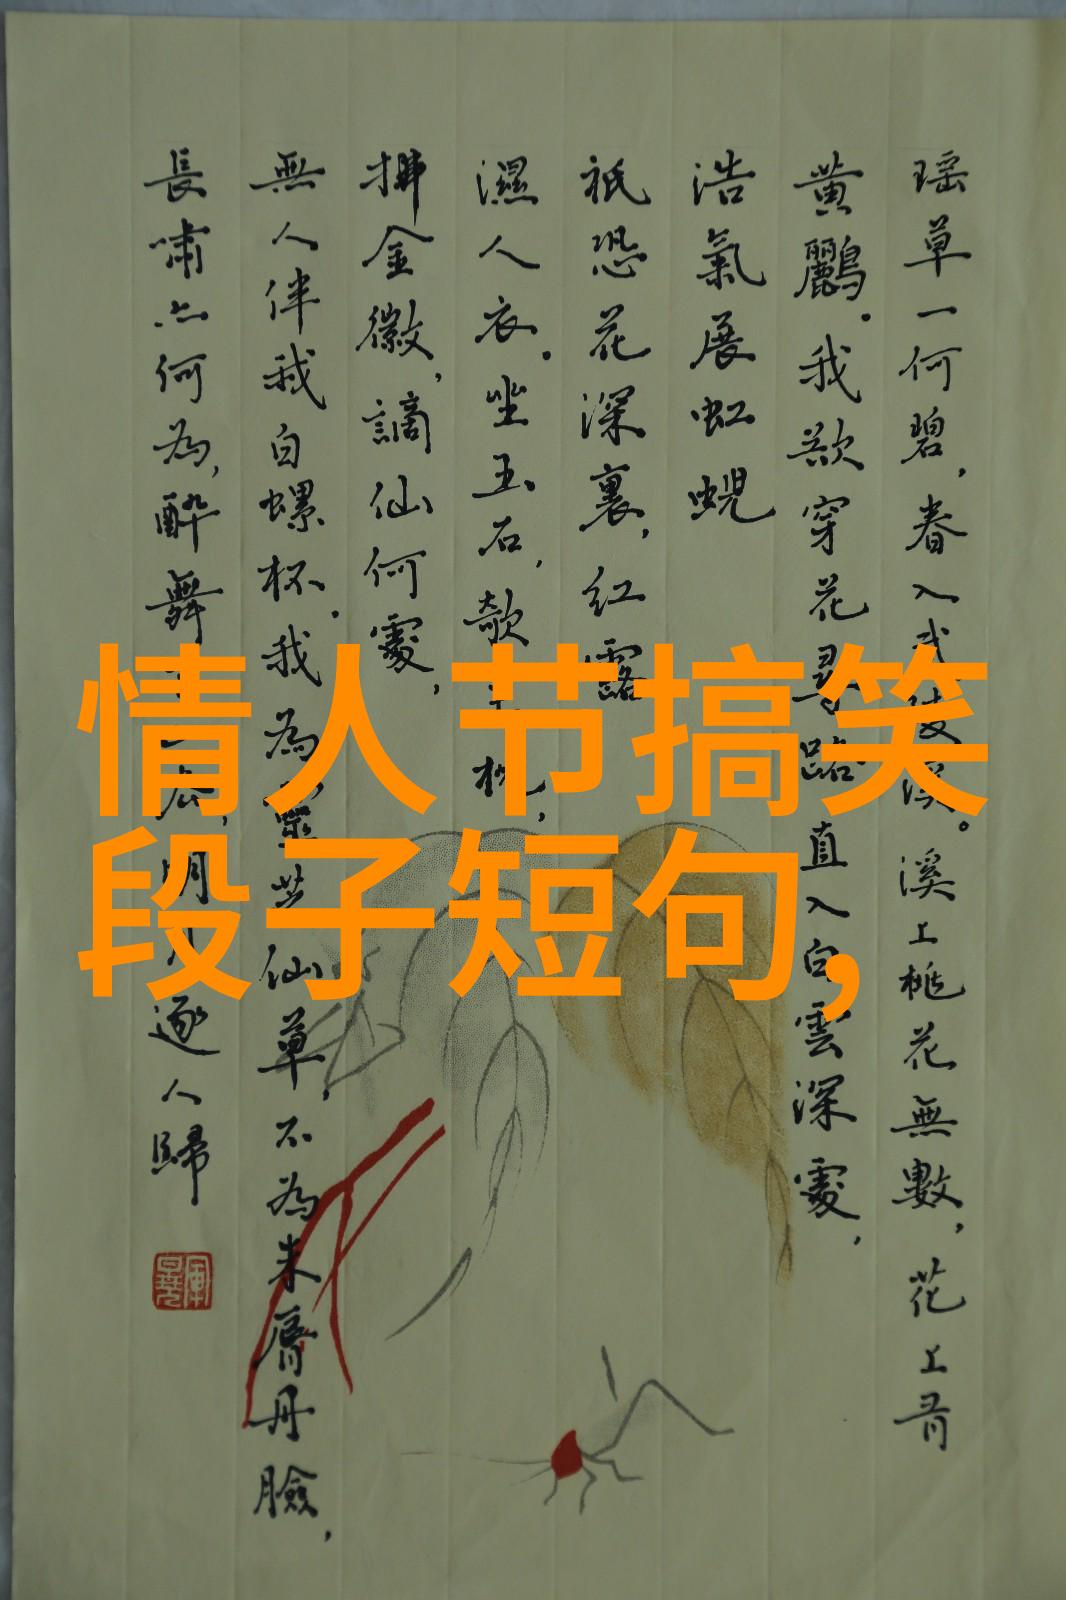 瑶草一何碧，春入武陵溪。溪上桃花無數，花上有
黄鸝。我欲穿花尋路直入白雲深處，
浩氣展虹蜺
祇恐花深裏，紅露
濕人衣。坐玉石，欹玉枕，
拂金徽，謫仙何處，
無人伴我白螺杯。我為靈芝仙草，不為朱脣丹臉，
長嘯亦何為，醉舞下山去，明月逐人歸
情人节搞笑
段子短句,